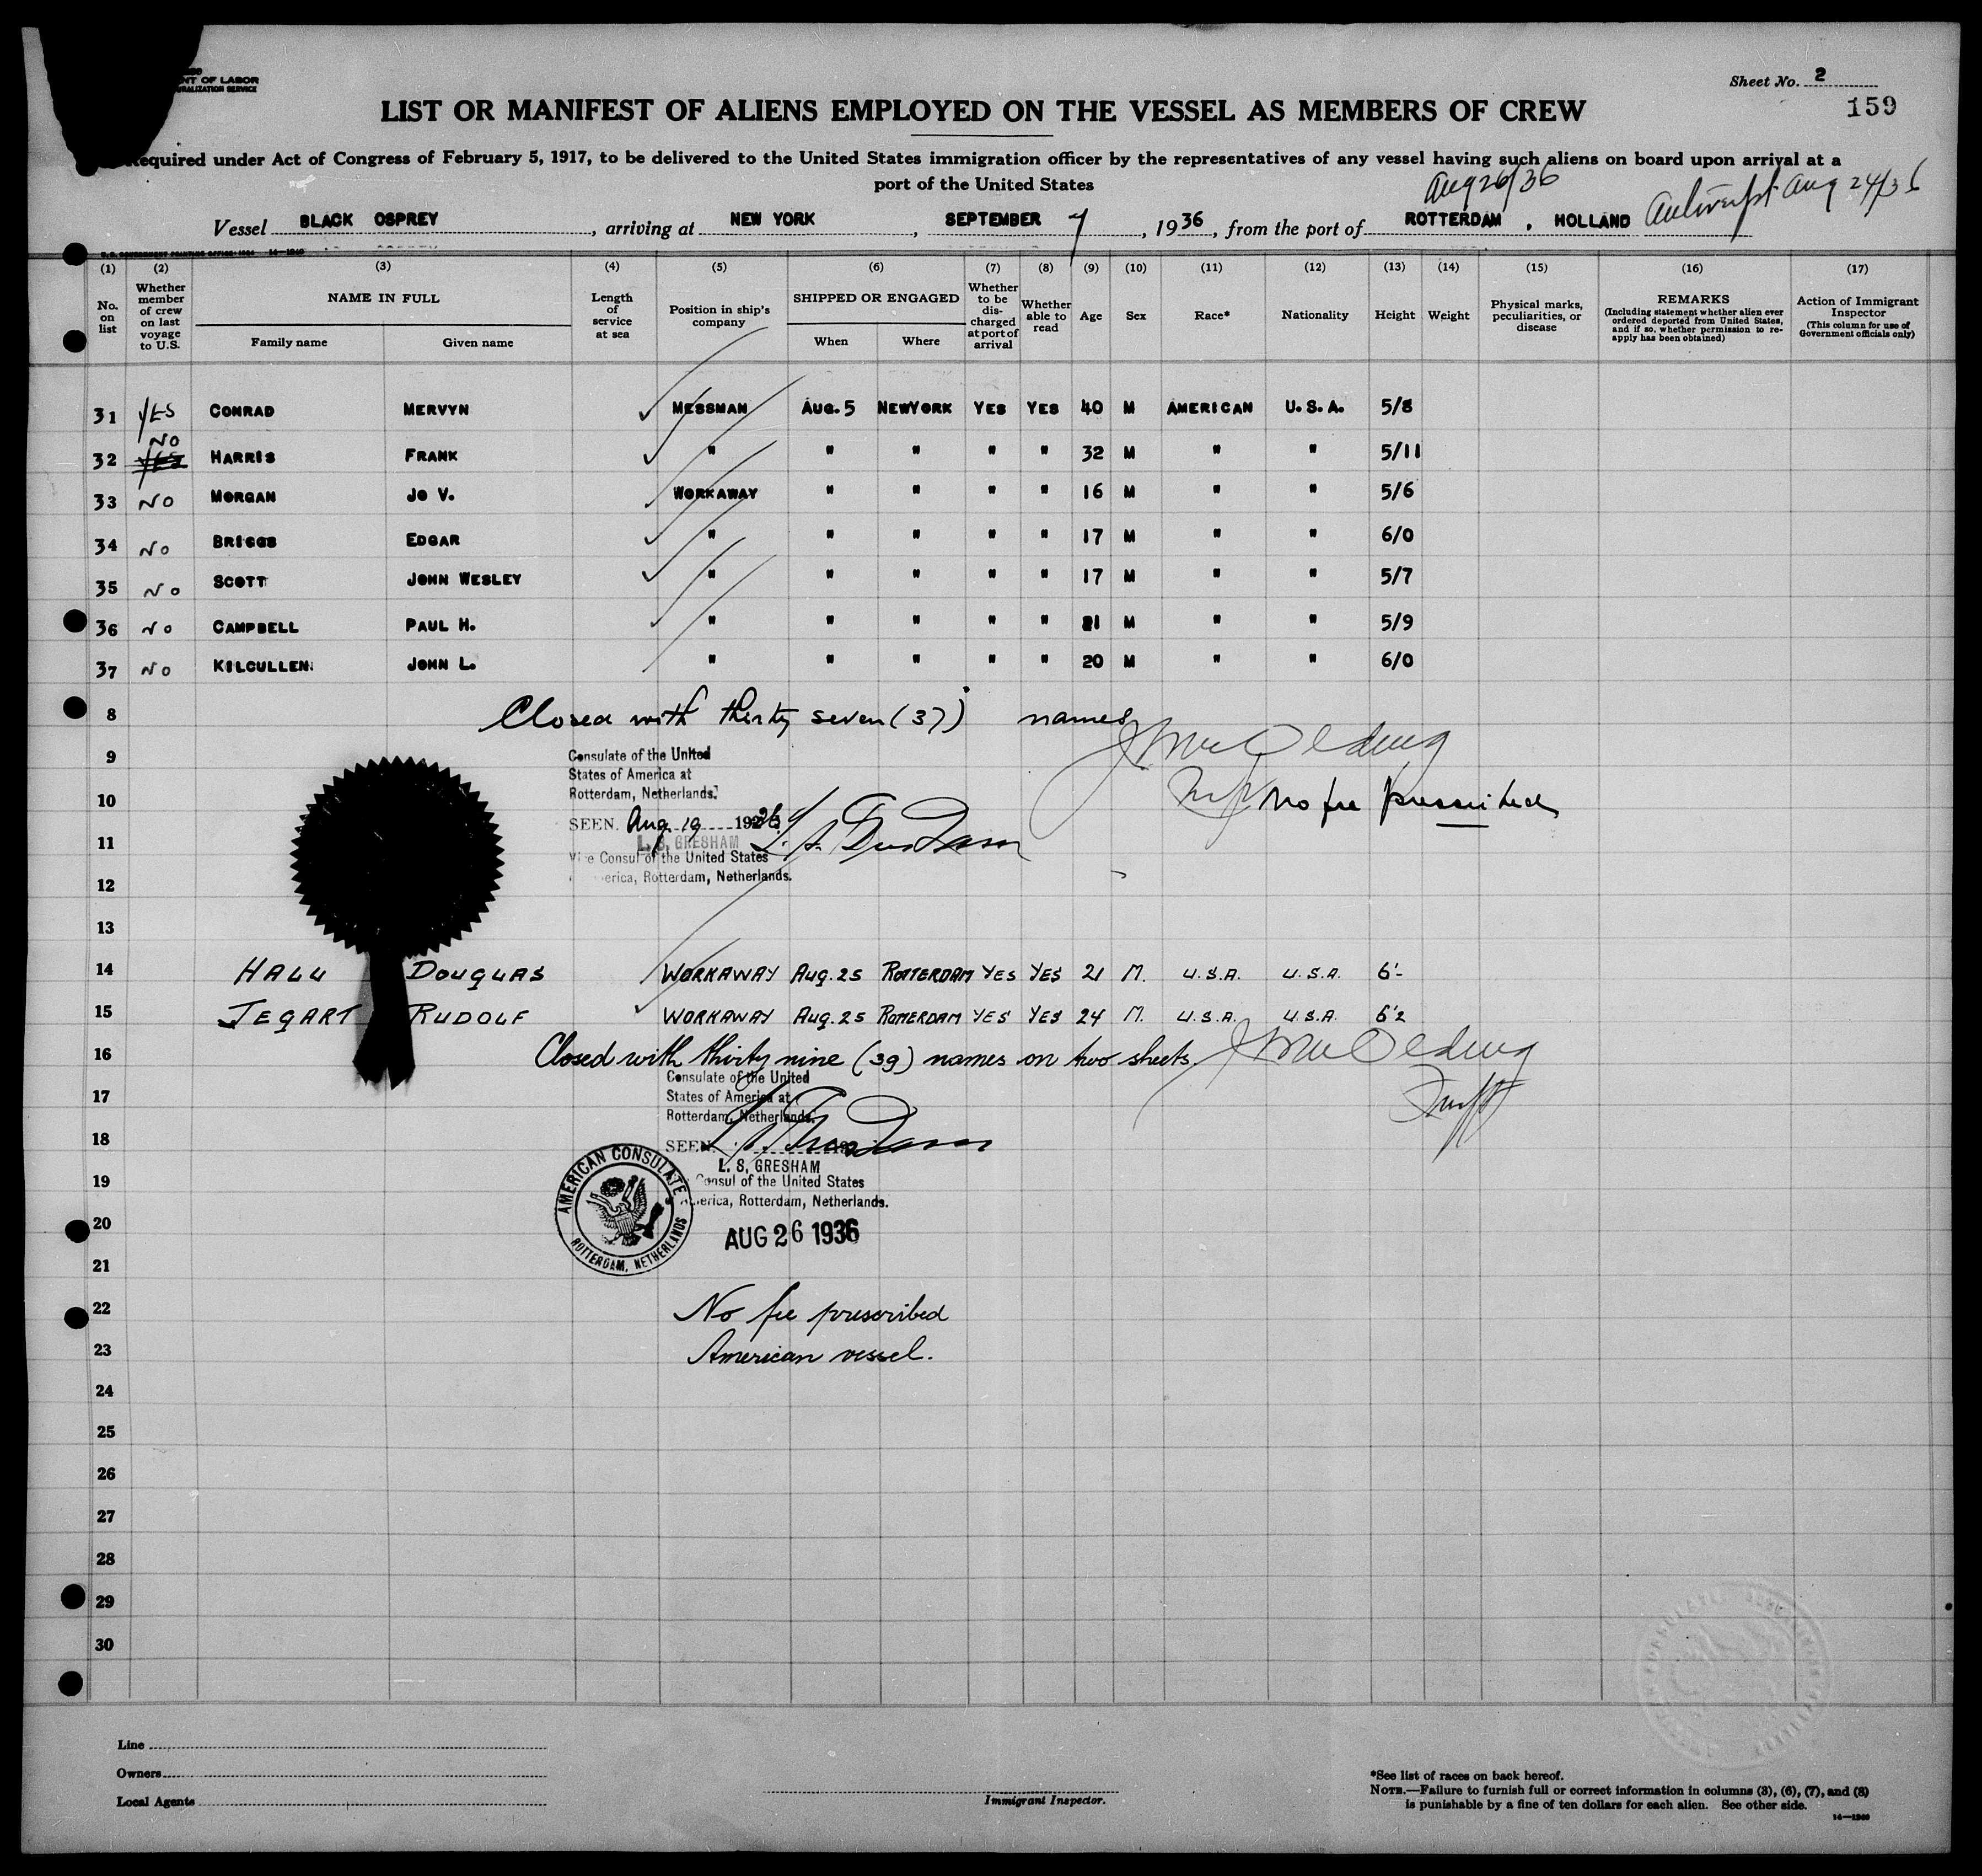 NT OF LABOR
RALIZATION SERVICE
Sheet No. 2
159
LIST OR MANIFEST OF ALIENS EMPLOYED ON THE VESSEL AS MEMBERS OF CREW
equired under Act of Congress of February 5, 1917, to be delivered to the United States immigration officer by the representatives of any vessel having such aliens on board upon arrival at a
port of the United States
Aug 26/36
Vessel BLACK OSPREY, arriving at NEW YORK, SEPTEMBER 7, 1936, from the port of ROTTERDAM, HOLLAND Antwerp Aug 24/36
(1) (2) (3) (4) (5) (6) (7) (8) (9) (10) (11) (12) (13) (14) (15) (16) (17)
No. on list
Whether member of crew on last voyage to U.S.
NAME IN FULL
Family name Given name
Length of service at sea
Position in ship's company
SHIPPED OR ENGAGED
When Where
Whether to be discharged at port of arrival
Whether able to read
Age
Sex
Race*
Nationality
Height
Weight
Physical marks, peculiarities, or disease
REMARKS
(Including statement whether alien ever ordered deported from United States, and if so, whether permission to reapply has been obtained)
Action of Immigrant Inspector
(This column for use of Government officials only)
31 YES CONRAD MERVYN MESSMAN AUG. 5 NEWYORK YES YES 40 M AMERICAN U.S.A. 5/8
NO
32 YES HARRIS FRANK " " " " " 32 M " " 5/11
33 NO MORGAN JO V. WORKAWAY " " " " 16 M " " 5/6
34 NO BRIGGS EDGAR " " " " " 17 M " " 6/0
35 NO SCOTT JOHN WESLEY " " " " " 17 M " " 5/7
36 NO CAMPBELL PAUL H. " " " " " 21 M " " 5/9
37 NO KILCULLEN JOHN L. " " " " " 20 M " " 6/0
8 Closed with thirty seven (37) names
9 Consulate of the United
States of America at
10 Rotterdam, Netherlands. No fee prescribed
SEEN. Aug. 19 1936
11 L. S. GRESHAM
Vice Consul of the United States
12 erica, Rotterdam, Netherlands.
13
14 HALL DOUGLAS WORKAWAY Aug. 25 ROTTERDAM YES YES 21 M. U.S.A. U.S.A. 6'-
15 JEGART RUDOLF WORKAWAY Aug. 25 ROTTERDAM YES YES 24 M. U.S.A. U.S.A. 6'2
16 Closed with thirty nine (39) names on two sheets
Consulate of the United
17 States of America at
Rotterdam, Netherlands.
18 SEEN.
L. S. GRESHAM
19 Consul of the United States
erica, Rotterdam, Netherlands.
AMERICAN CONSULATE
ROTTERDAM, NETHERLANDS
20 AUG 26 1936
21
22 No fee prescribed
23 American vessel.
24
25
26
27
28
29
30
Line
Owners
Local Agents
Immigrant Inspector.
*See list of races on back hereof.
NOTE.—Failure to furnish full or correct information in columns (3), (6), (7), and (8)
is punishable by a fine of ten dollars for each alien. See other side.
14—1240